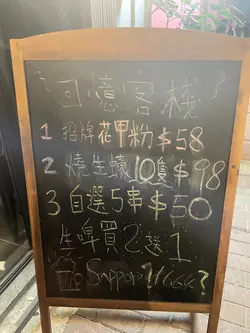 回憶客棧
1 招牌花甲粉$58
2 燒生蠔10隻$98
3 自選5串$50
生啤買2送1
Sapporo